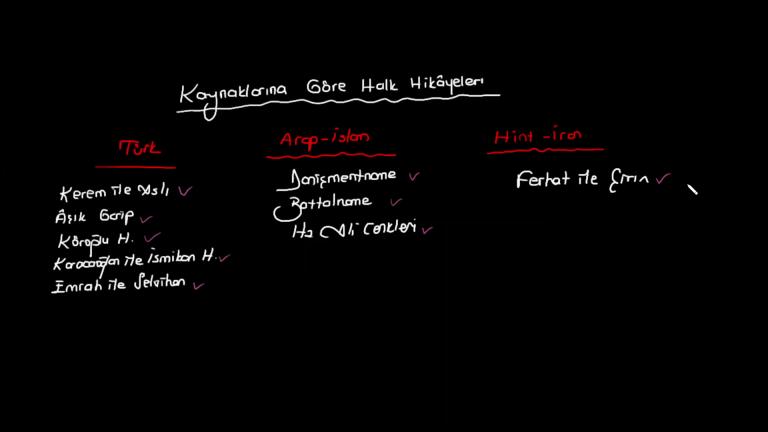 Kaynaklarına Göre Halk Hikâyeleri
Türk
Kerem ile Aslı
Âşık Garip
Köroğlu H.
Karacaoğlan ile İsmikan H.
Emrah ile Selvihan
Arap-islam
Danişmentname
Battalname
Hz Ali Cenkleri
Hint-iran
Ferhat ile Şirin